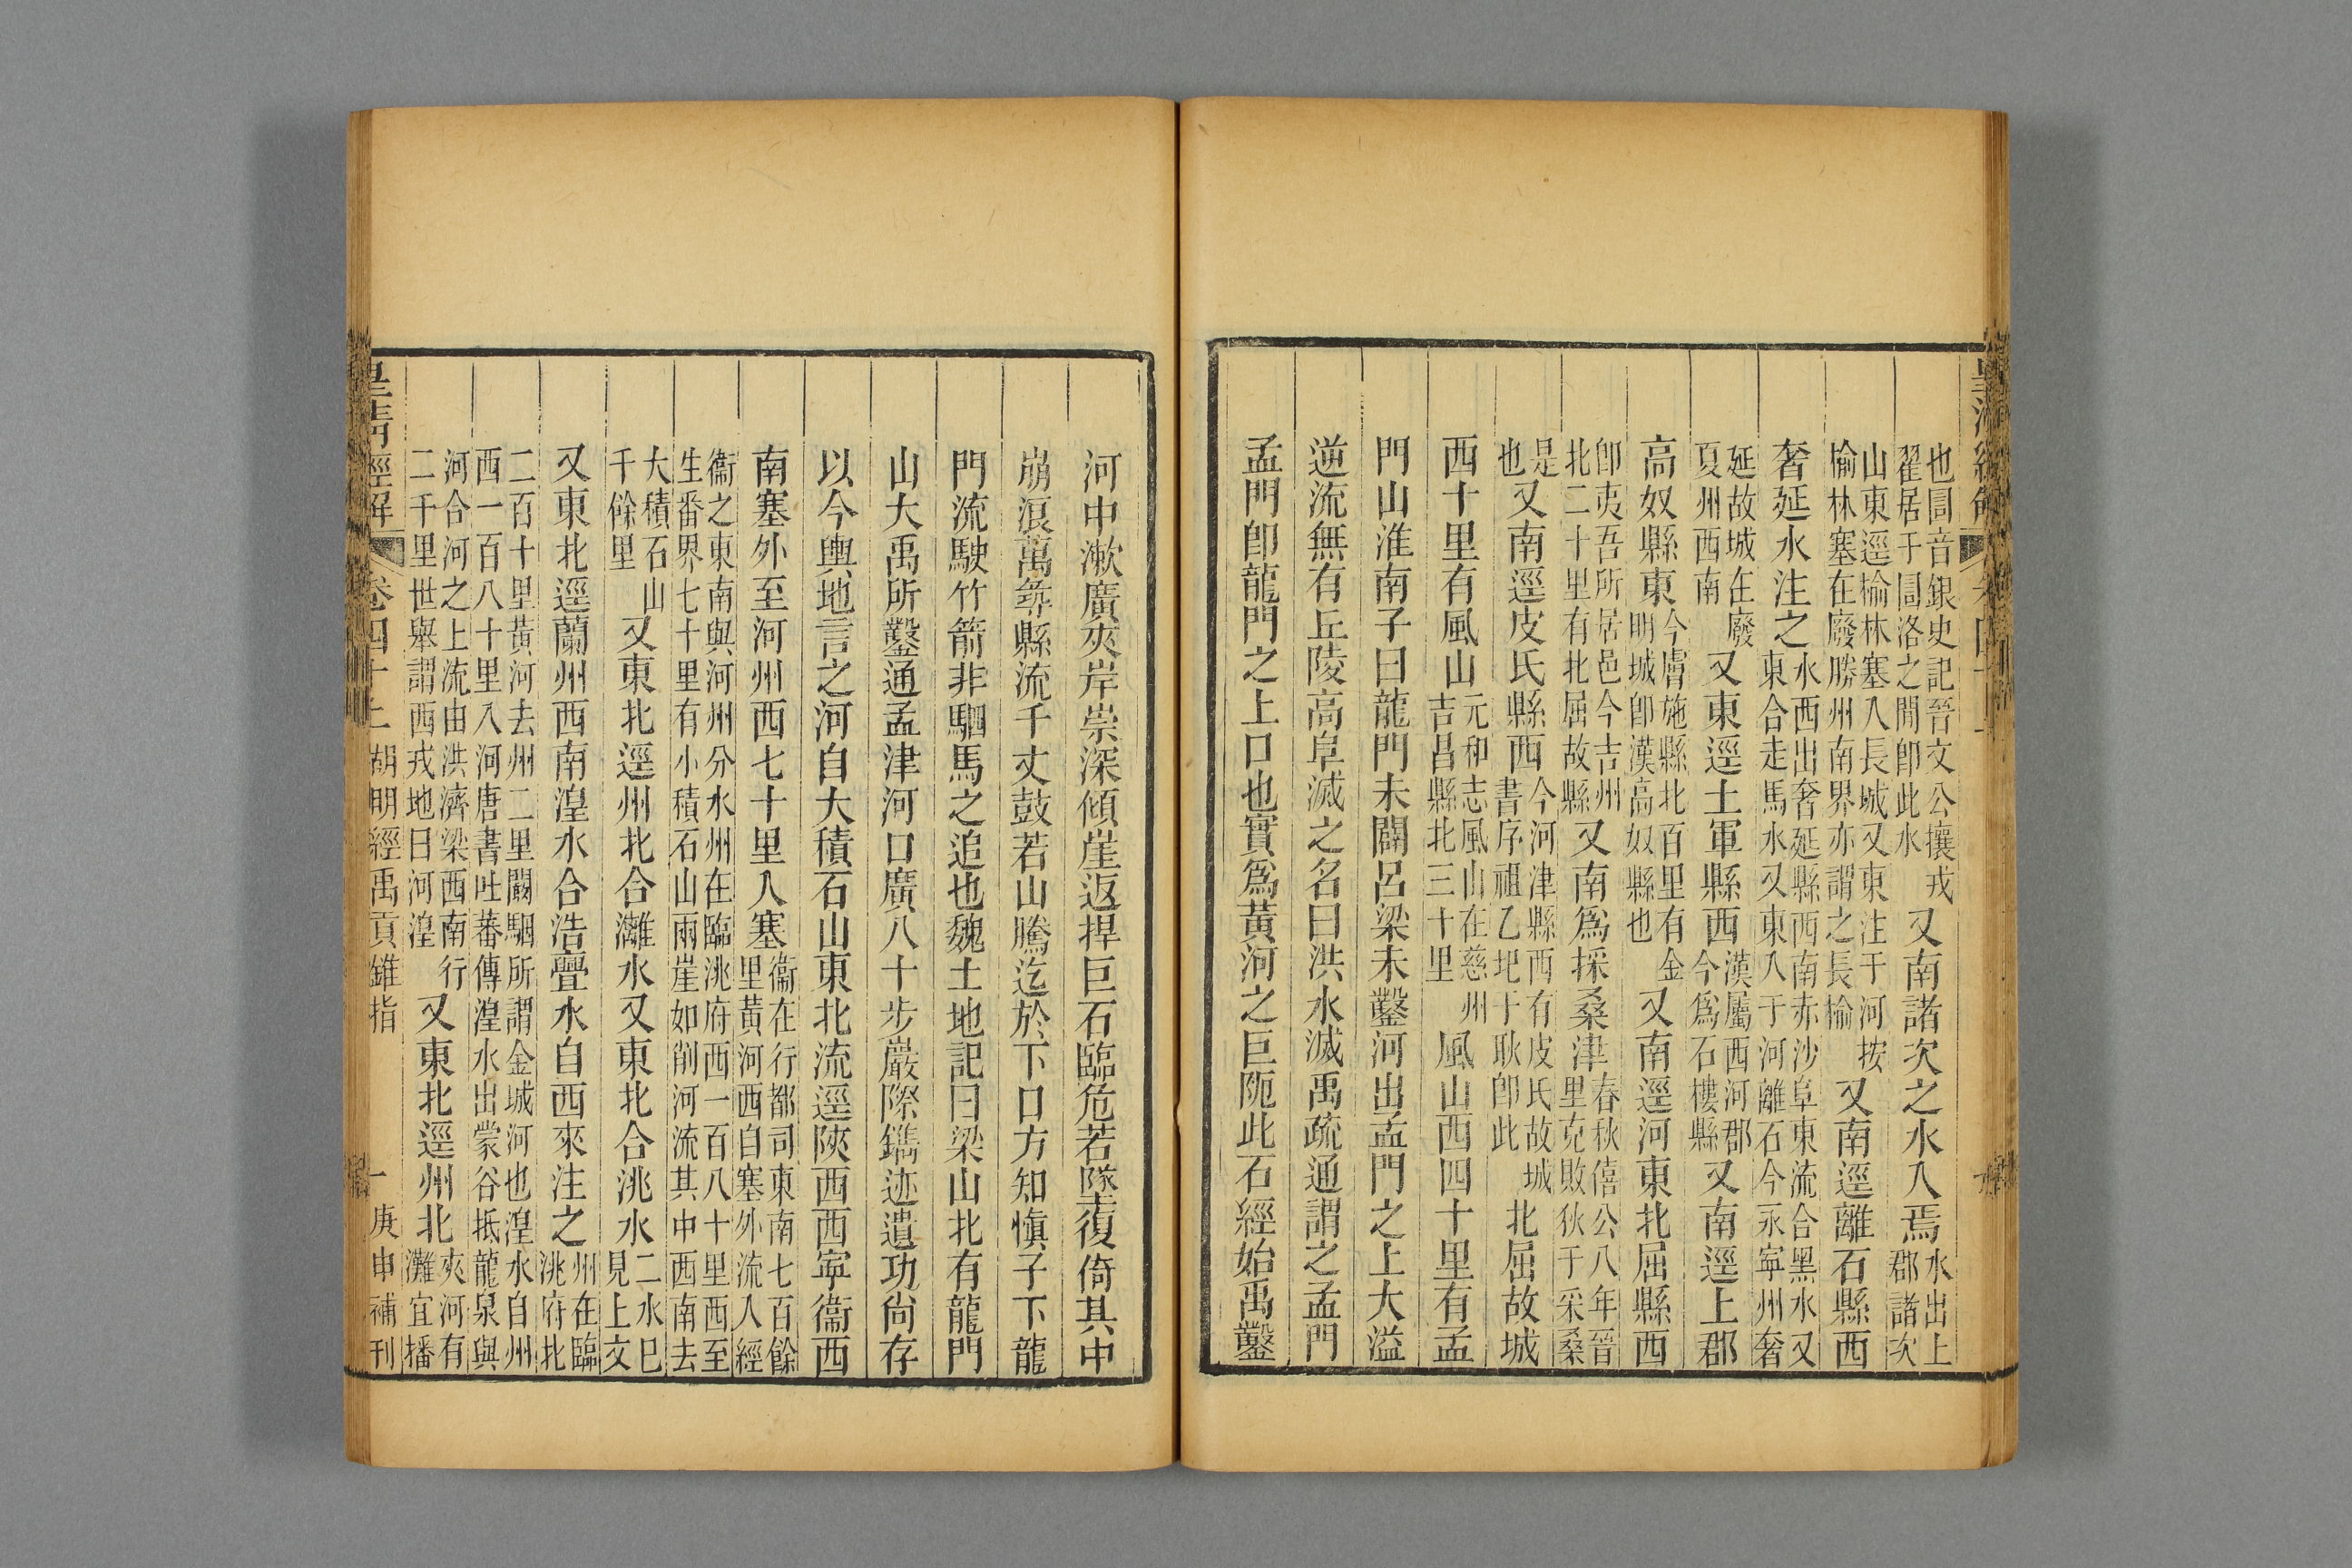 也圁音銀史記晉文公攘戎翟居于圁洛之間卽此水又南諸次之水入焉水出上郡諸次
山東逕榆林塞入長城又東注于河按榆林塞在廢勝州南界亦謂之長榆又南逕離石縣西
奢延水注之水西出奢延縣西南赤沙阜東流合黑水又東合走馬水又東入于河離石今永寧州奢
延故城在廢夏州西南又東逕土軍縣西漢屬西河郡今爲石樓縣又南逕上郡
高奴縣東今膚施縣北百里有金明城卽漢高奴縣也又南逕河東北屈縣西
卽夷吾所居邑今吉州北二十里有北屈故縣又南爲採桑津春秋僖公八年晉里克敗狄于采桑
是也又南逕皮氏縣西今河津縣西有皮氏故城書序祖乙圯于耿卽此北屈故城
西十里有風山元和志風山在慈州吉昌縣北三十里風山西四十里有孟
門山淮南子曰龍門未闢呂梁未鑿河出孟門之上大溢
逆流無有丘陵高阜滅之名曰洪水滅禹疏通謂之孟門
孟門卽龍門之上口也實爲黃河之巨阨此石經始禹鑿
河中漱廣夾岸崇深傾崖返捍巨石臨危若墜復倚其中
崩浪萬尋縣流千丈鼓若山騰迄於下口方知愼子下龍
門流駛竹箭非駟馬之追也魏土地記曰梁山北有龍門
山大禹所鑿通孟津河口廣八十步巖際鐫迹遺功尙存
以今輿地言之河自大積石山東北流逕陝西西寧衞西
南塞外至河州西七十里入塞衞在行都司東南七百餘里黃河西自塞外流入經
衞之東南與河州分水州在臨洮府西一百八十里西至生番界七十里有小積石山兩崖如削河流其中西南去
大積石山千餘里又東北逕州北合灉水又東北合洮水二水巳見上文
又東北逕蘭州西南湟水合浩亹水自西來注之州在臨洮府北
二百十里黃河去州二里闞駰所謂金城河也湟水自州西一百八十里入河唐書吐蕃傳湟水出蒙谷抵龍泉與
河合河之上流由洪濟梁西南行二千里世舉謂西戎地曰河湟又東北逕州北夾河有灘宜播
皇淸經解 卷四十上 胡明經禹貢錐指 一 庚申補刊